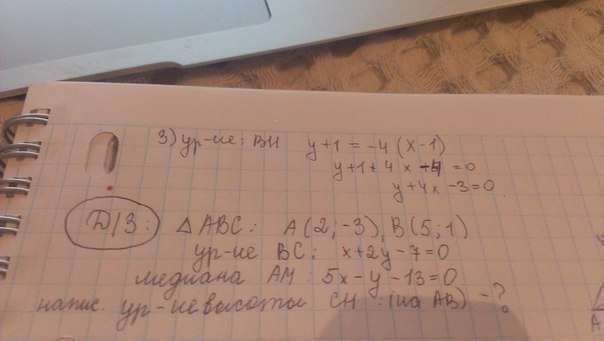 3) ур-ие: BH y+1 = -4 (x-1)
y+1+4x-4=0
y+4x-3=0
Д/З: △ABC: A(2;-3), B(5;1)
ур-ие BC: x+2y-7=0
медиана AM: 5x-y-13=0
напис. ур-ие высоты CH: (на AB) -?
A